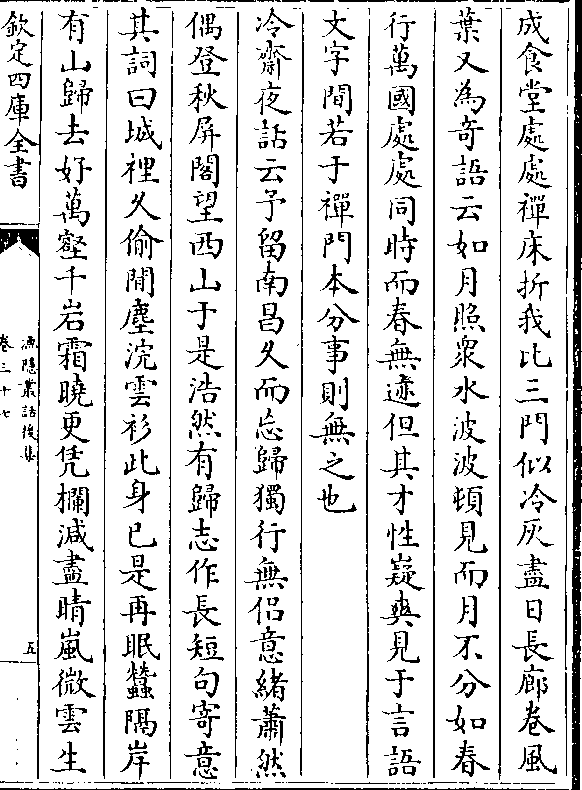 成食堂處處禪床折我比三門似冷灰盡日長廊卷風
葉又為奇語云如月照衆水波波頓見而月不分如春
行萬國處處同時而春無迹但其才性嶷爽見于言語
文字間若于禪門本分事則無之也
冷齋夜話云予留南昌久而忘歸獨行無侣意緒蕭然
偶登秋屏閣望西山于是浩然有歸志作長短句寄意
其詞曰城裡久偷閒塵涴雲衫此身已是再眠蠶隔岸
有山歸去好萬壑千岩霜曉更凭欄減盡晴嵐微雲生
欽定四庫全書
漁隱叢話後集
卷三十七
五